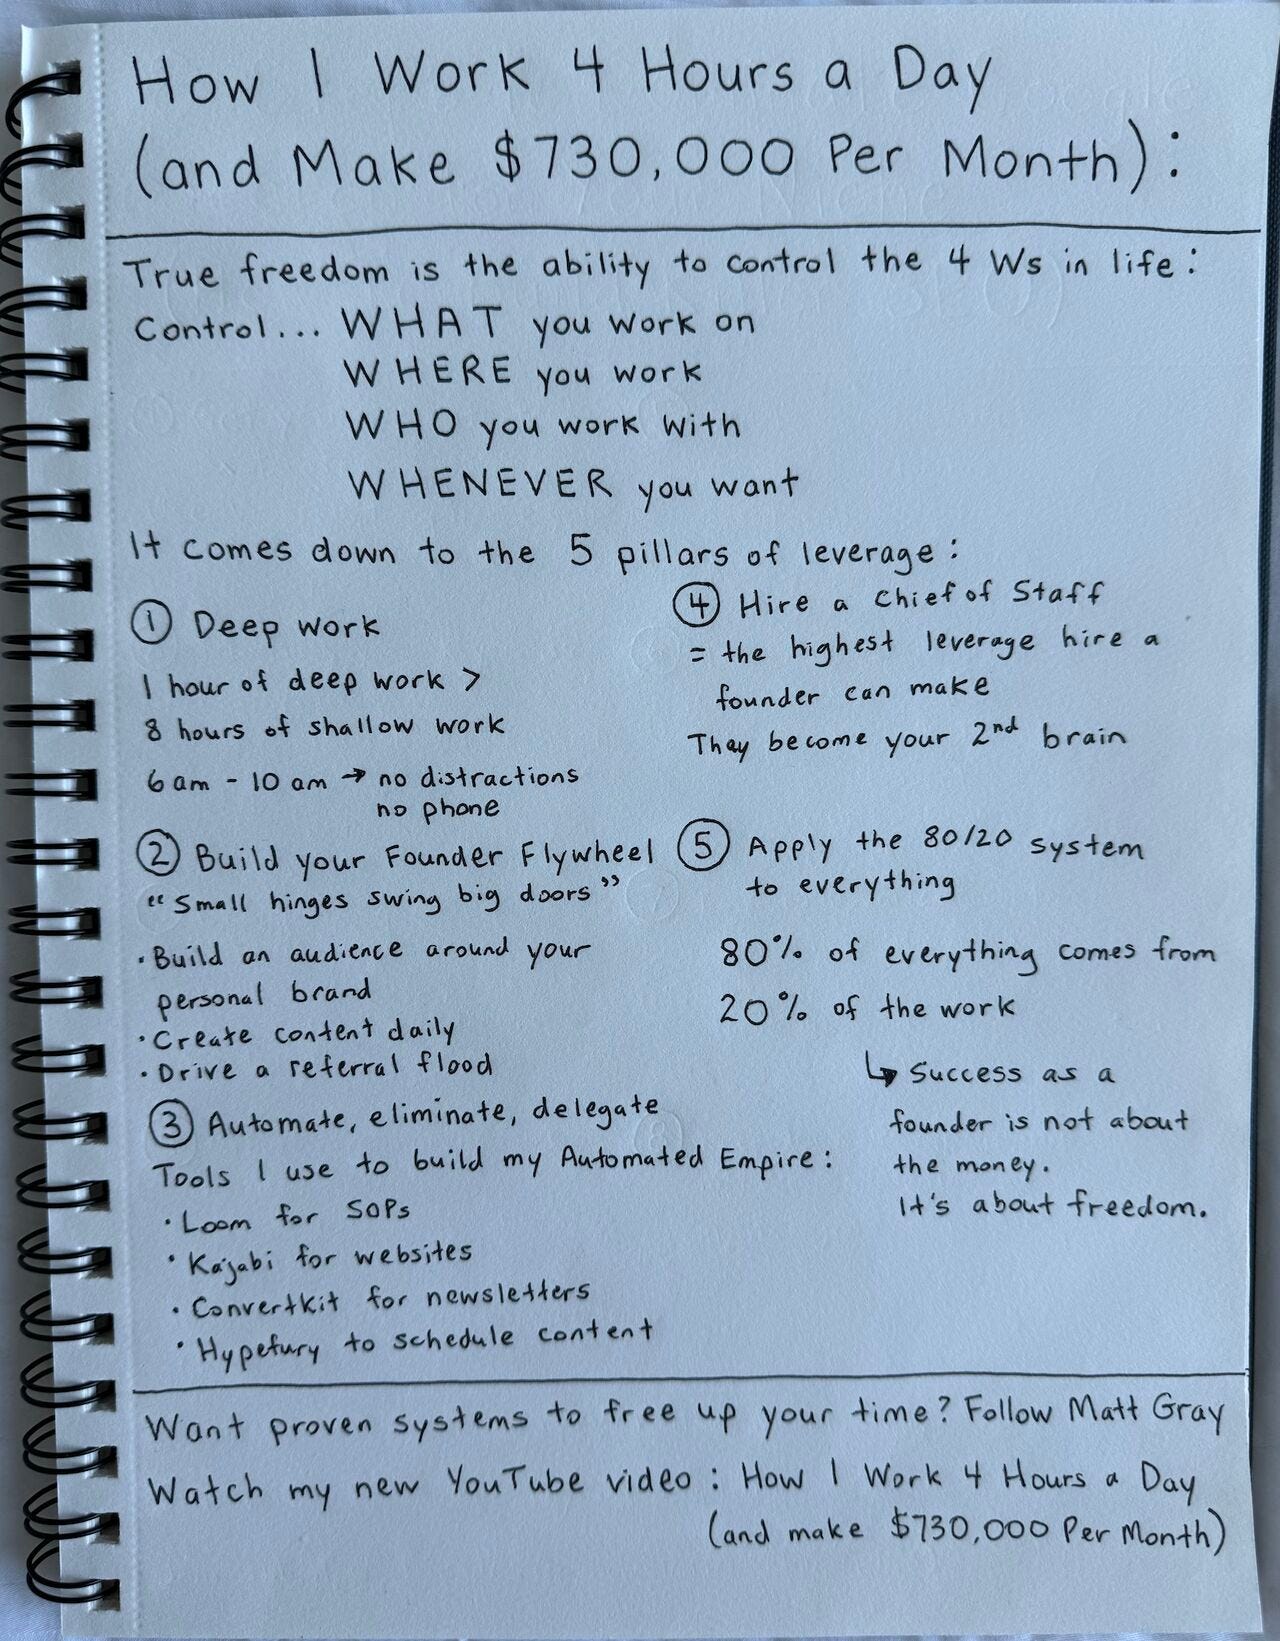 How I Work 4 Hours a Day
(and Make $730,000 Per Month):
True freedom is the ability to control the 4 Ws in life:
Control... WHAT you work on
WHERE you work
WHO you work with
WHENEVER you want
It comes down to the 5 pillars of leverage:
① Deep work
1 hour of deep work >
8 hours of shallow work
6 am - 10 am → no distractions
no phone
② Build your Founder Flywheel
"Small hinges swing big doors"
• Build an audience around your
personal brand
• Create content daily
• Drive a referral flood
③ Automate, eliminate, delegate
Tools I use to build my Automated Empire:
• Loom for SOPs
• Kajabi for websites
• ConvertKit for newsletters
• Hypefury to schedule content
④ Hire a Chief of Staff
= the highest leverage hire a
founder can make
They become your 2nd brain
⑤ Apply the 80/20 system
to everything
80% of everything comes from
20% of the work
↳ Success as a
founder is not about
the money.
It's about freedom.
Want proven systems to free up your time? Follow Matt Gray
Watch my new YouTube video: How I Work 4 Hours a Day
(and make $730,000 Per Month)